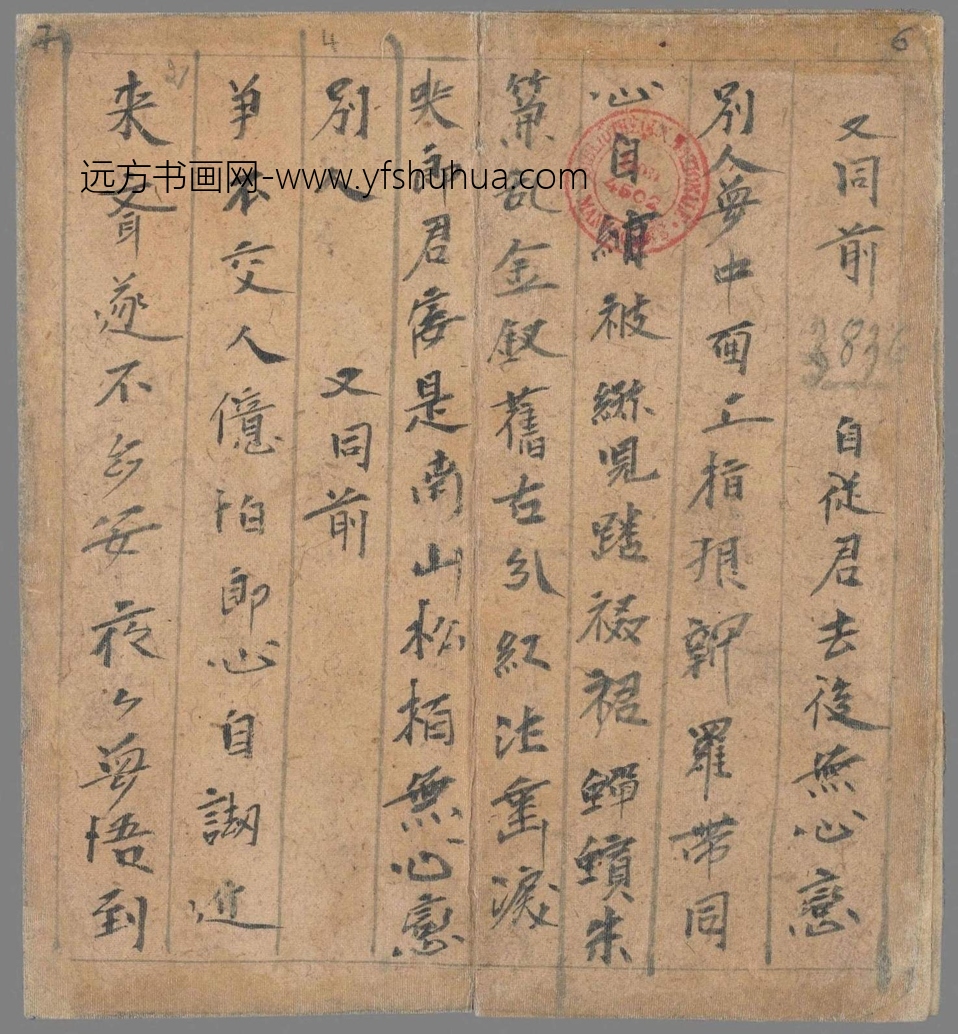 6
又同前 自從君去後無心戀
3836
別人夢中面上指痕新羅帶同
心自綰被猻児踏裰裙蟬鬢朱
簾亂金釵舊古分紅法垂淚
哭郎君是南山松柏無心戀
4
別人 又同前
爭不交人憶怕郎心自近
7
来遂不多安夜々夢悟到
4502
远方书画网-www.yfshuhua.com